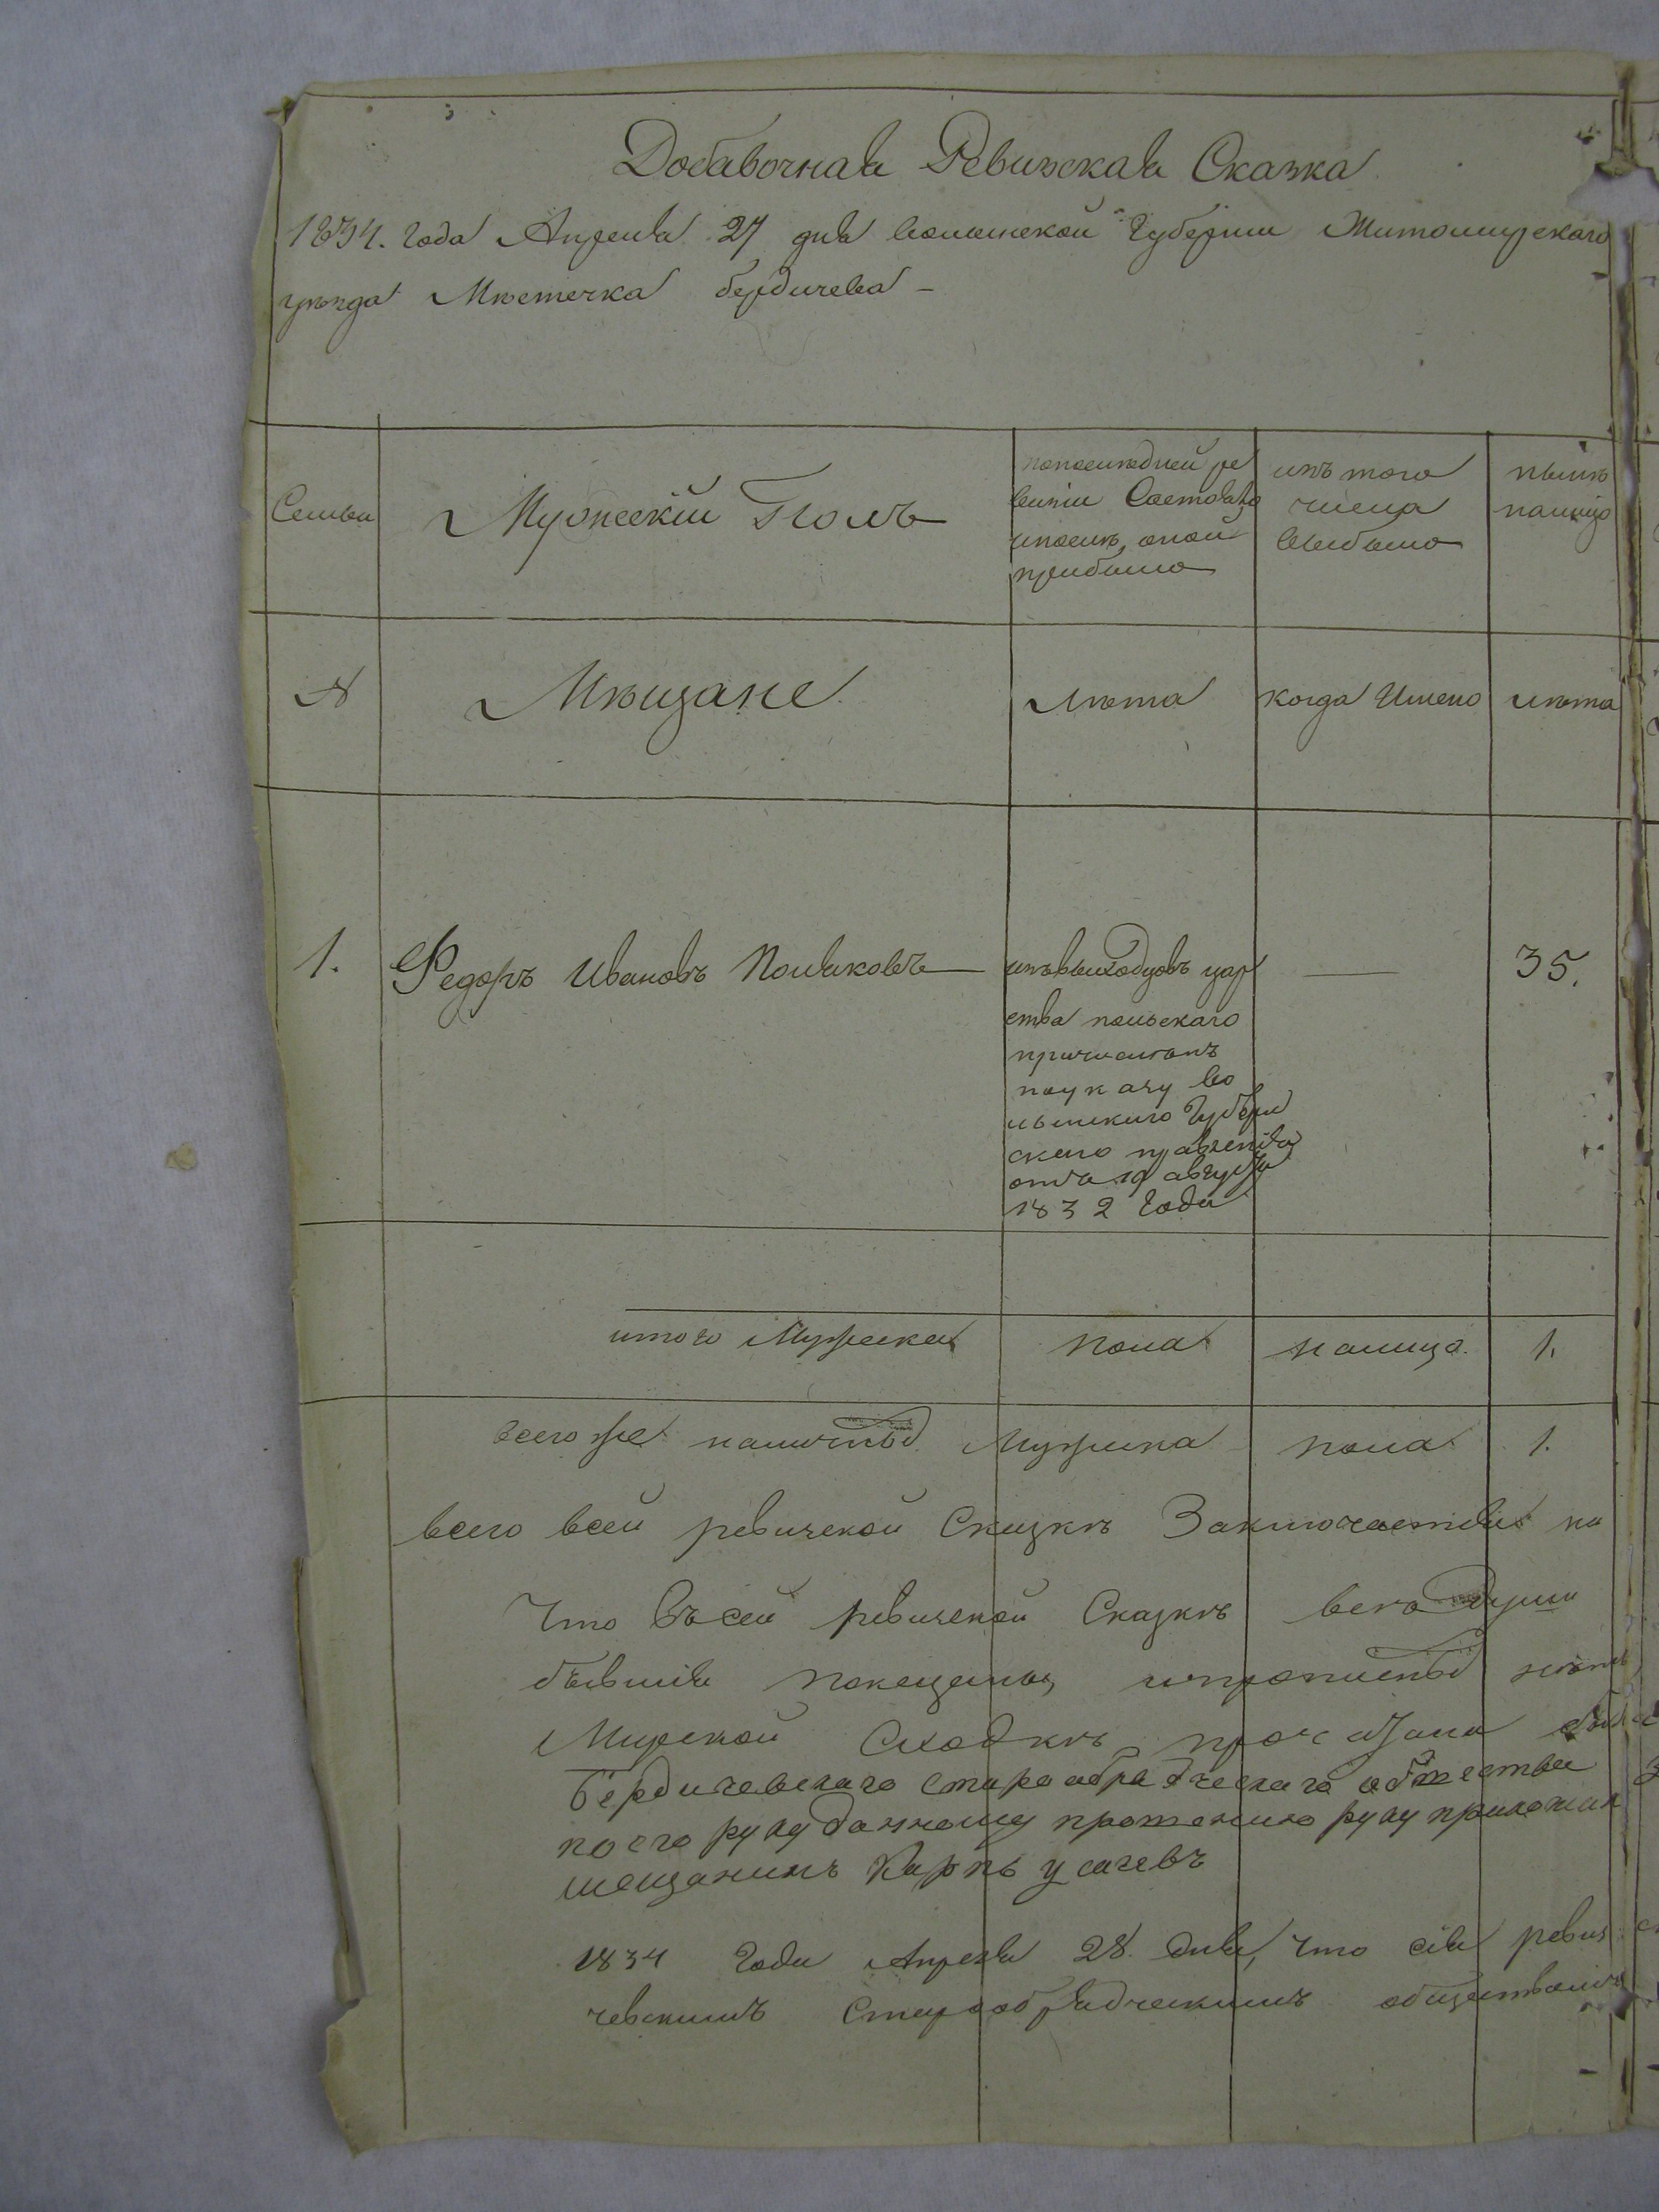 Добавочная Ревизская Сказка
1834. года Апреля 27 дня волынской Губернии Житомирскаго
уезда Мѣстечка бердичева -
Семьи
Мужескій Полъ
попоследней ре
визіи Састояло
ипослѣ оной
прибыло
изъ того
числа
выбыло
нынѣ
налицо
N
Мѣщане
лѣта
когда Имено
лѣта
1. Федоръ Ивановъ Поляковъ
изъвыходцовъ цар
ства польскаго
причисленъ
поуказу во
лынскаго Губерн
скаго правленія
отъ 19 августа
1832 Года
35.
итого Мужеска пола налицо 1.
всего же наличныхъ Мужеска пола 1.
всего всей ревизской Сказкѣ Заключается на
Что въ сей ревизской Сказкѣ всего души
бывшія и прописныхъ нѣтъ
Мирской Сходкѣ прочитана
Бердичевскаго старообрадческаго общества
по его рукоданному прошению руку приложил
мещанинъ Карпъ усачевъ
1834 Года Апреля 28. дня, что сія ревиз
чевскимъ Старообрядческимъ обществомъ